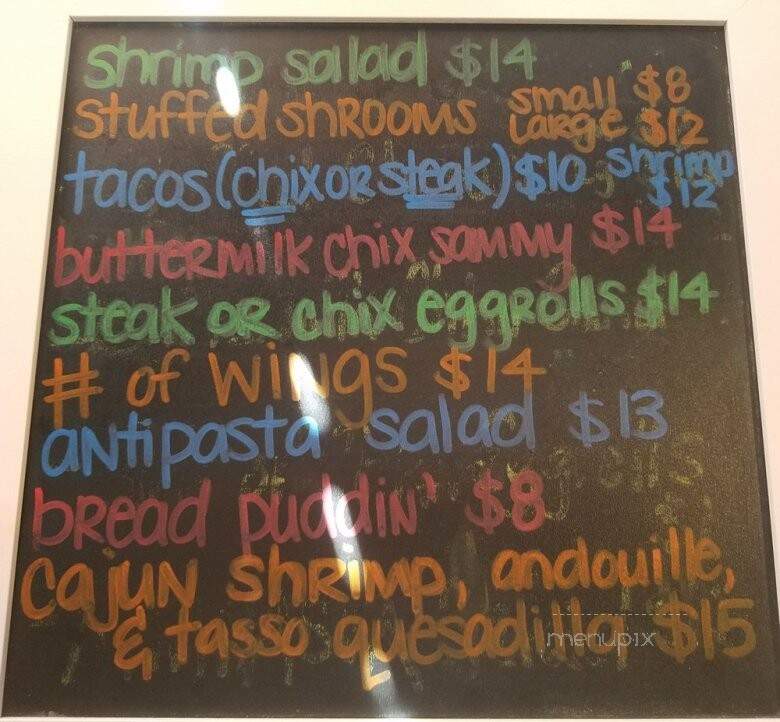 shrimp salad $14
stuffed shrooms small $8
large $12
tacos (chix or steak) $10 shrimp
$12
buttermilk chix sammy $14
steak or chix eggrolls $14
# of wings $14
antipasta salad $13
bread puddin' $8
cajun shrimp, andouille,
& tasso quesadilla $15
menupix